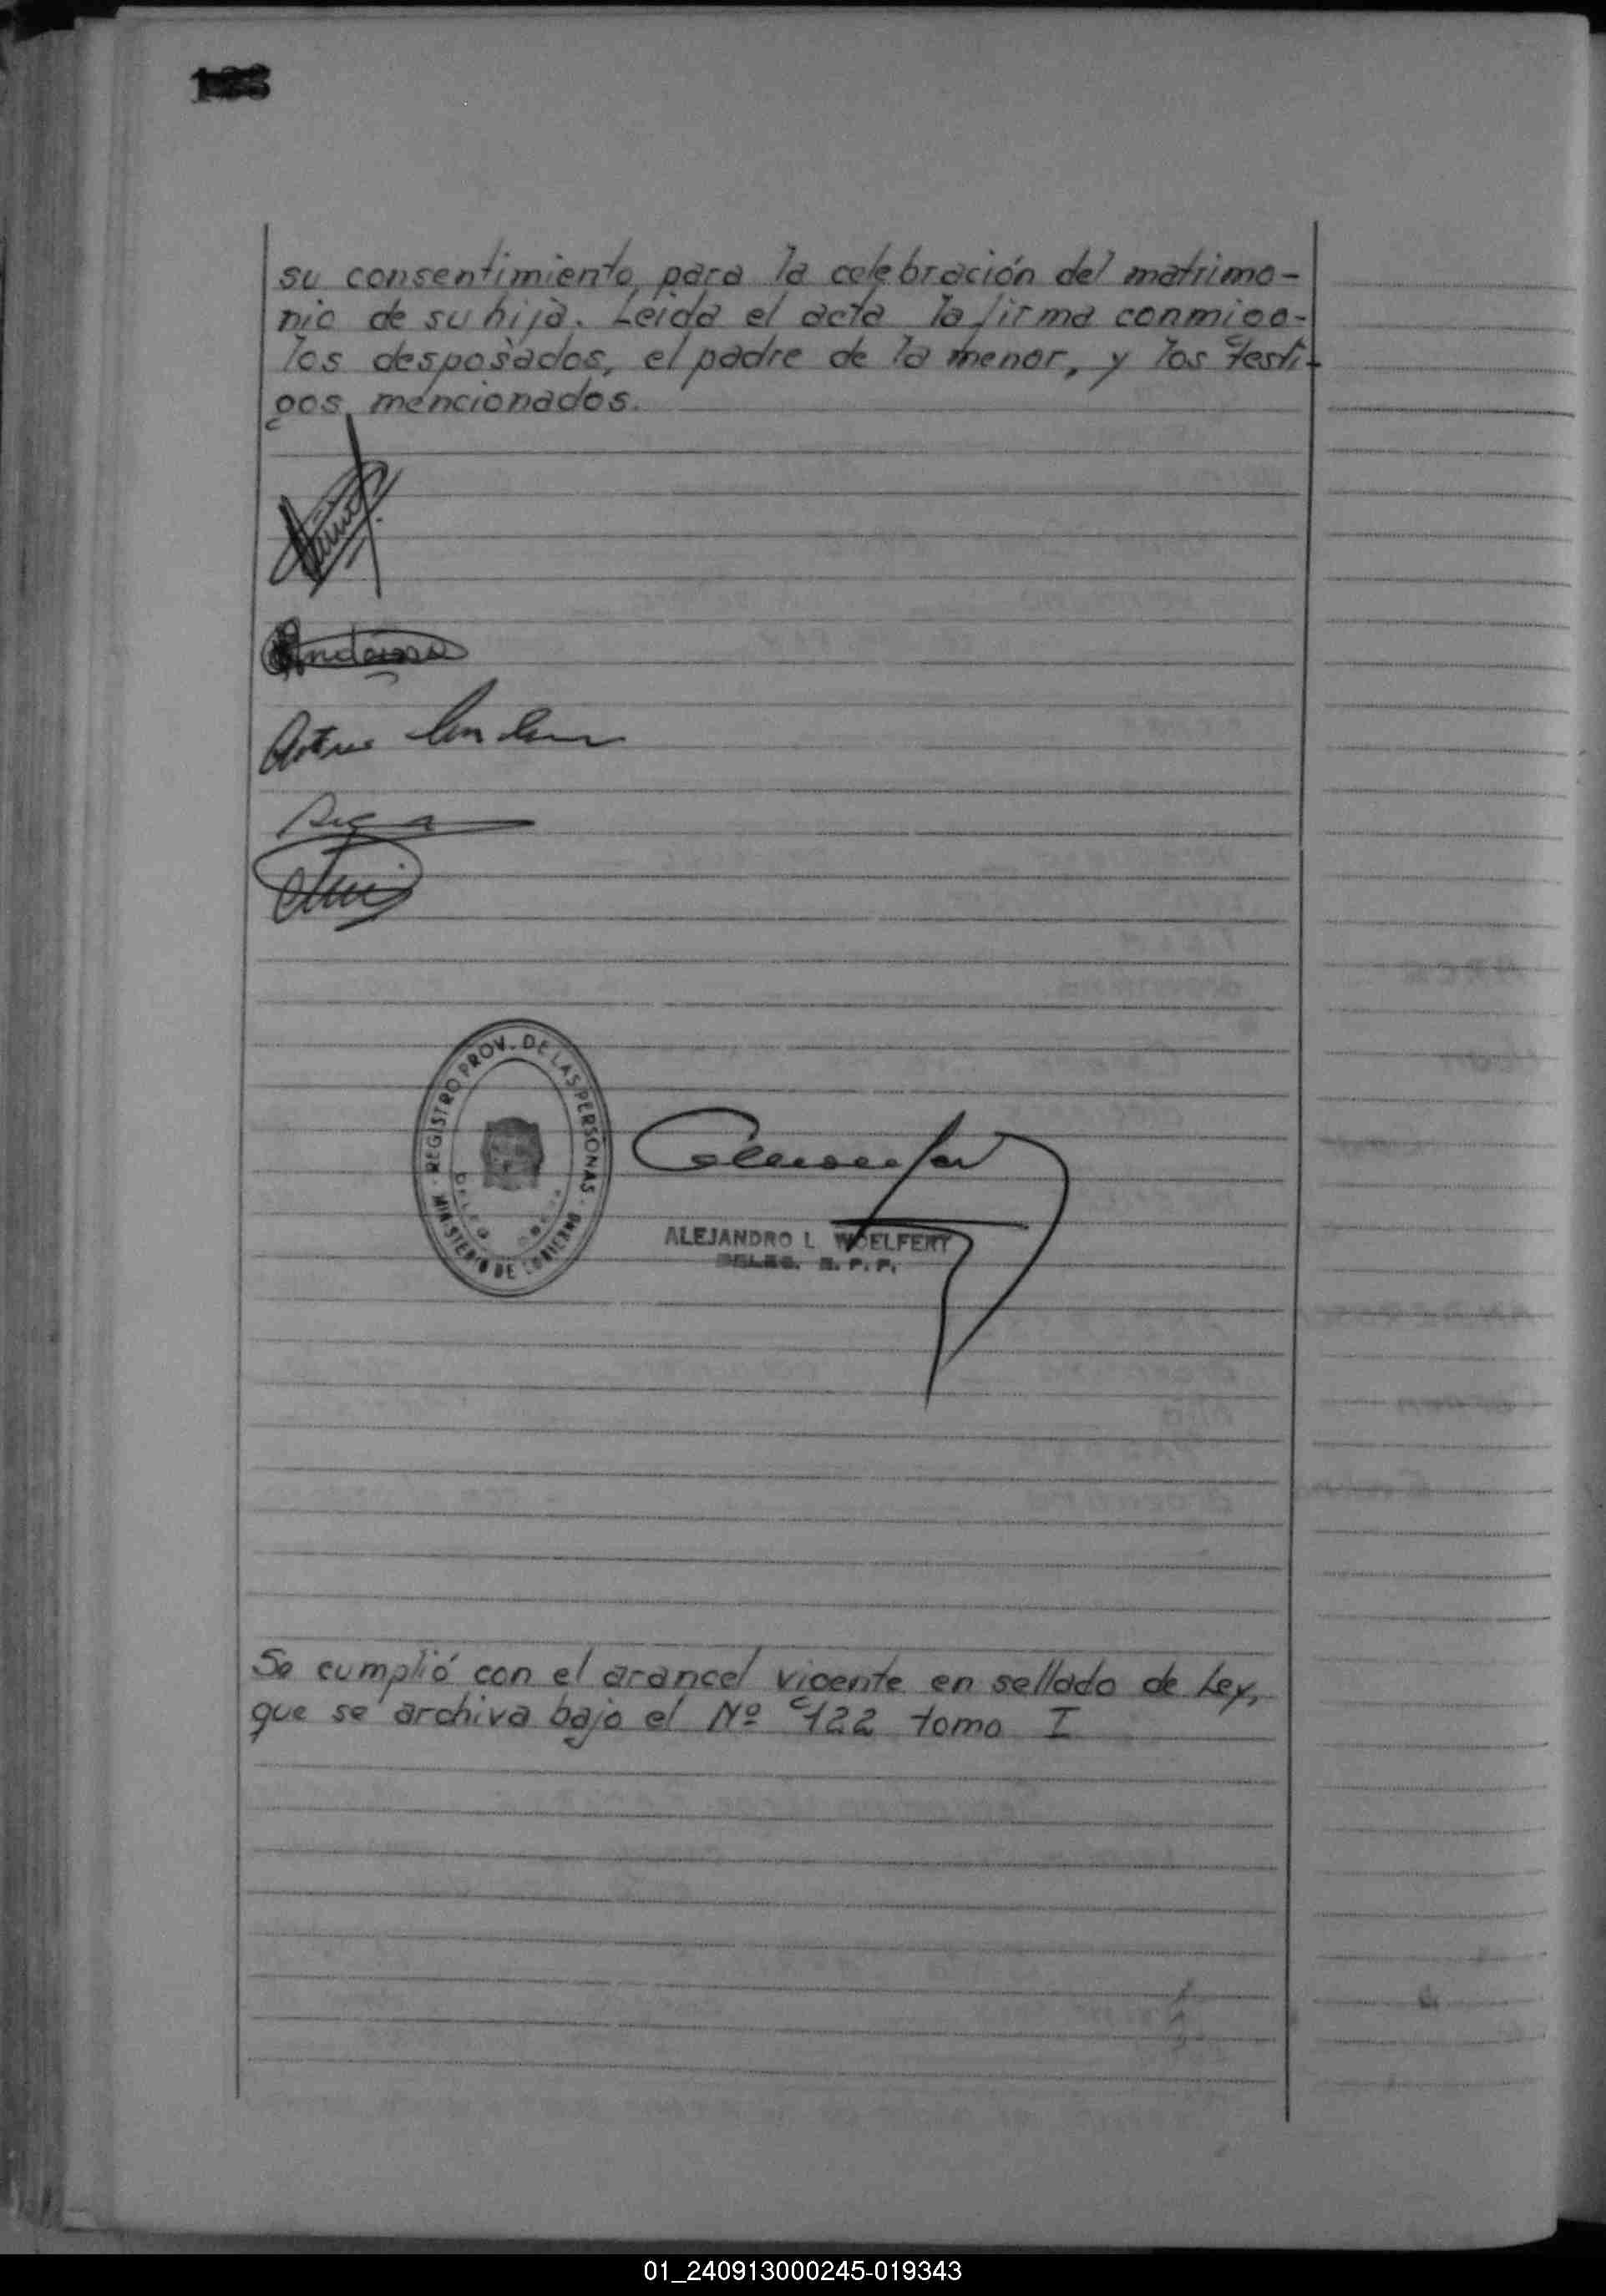 su consentimiento para la celebración del matrimo-
nio de su hija. Leida el acta la firma conmigo-
los desposados, el padre de la menor, y los testi-
gos mencionados.
REGISTRO PROV. DE LAS PERSONAS
MINISTERIO DE GOBIERNO
ALEJANDRO L WOELFERT
DELEG. R. P. P.
Se cumplió con el arancel vigente en sellado de Ley,
que se archiva bajo el Nº 122 tomo I
01_240913000245-019343